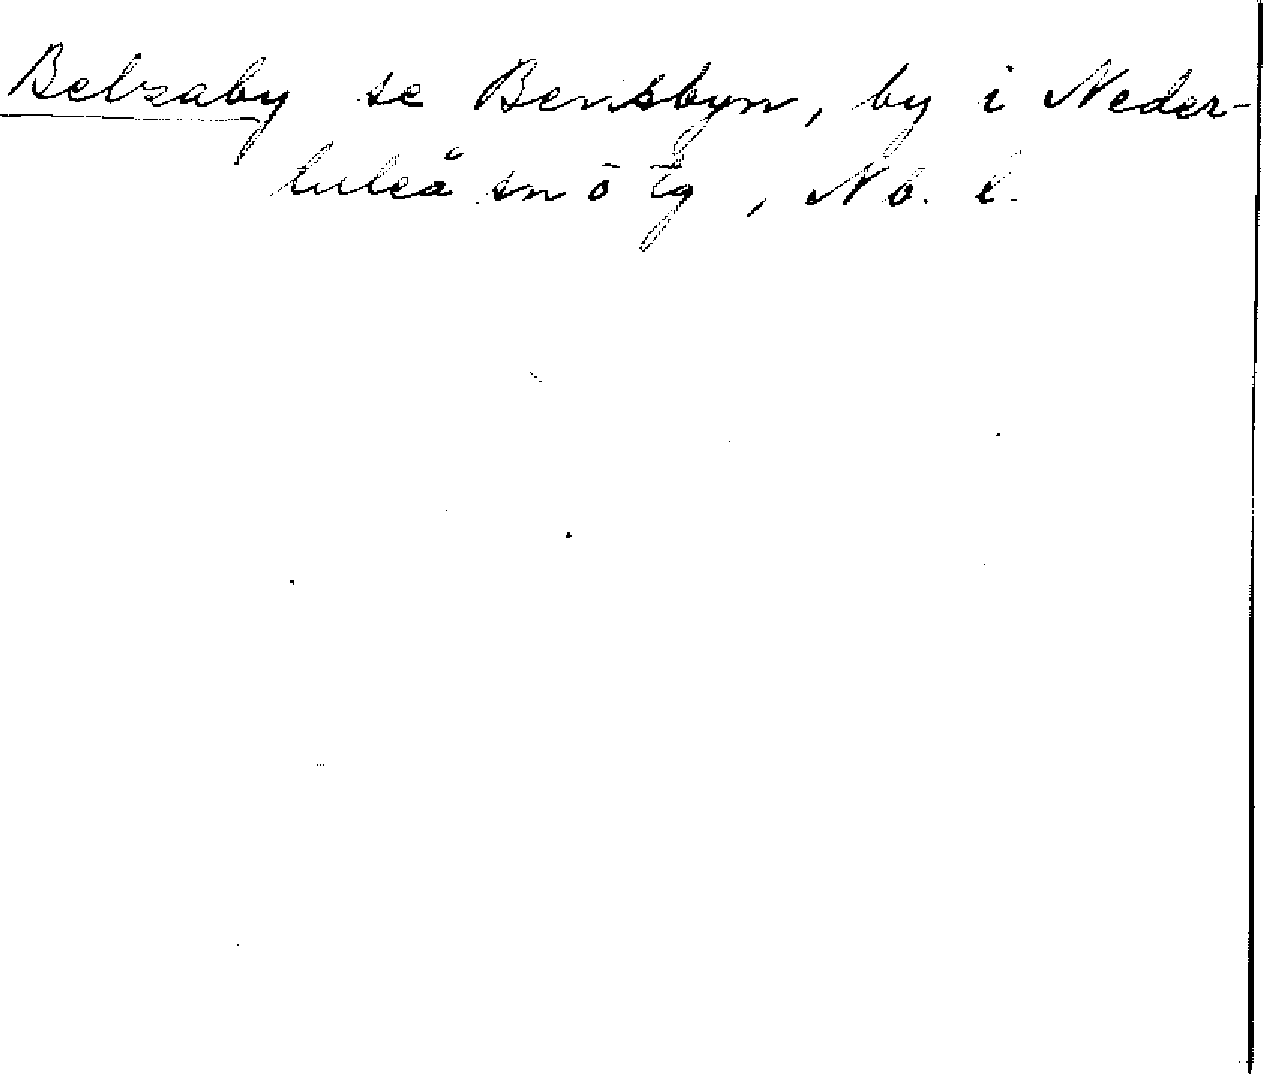 Belzaby se Bensbyn, by i Neder-
luleå sn o tg, Nb. l.